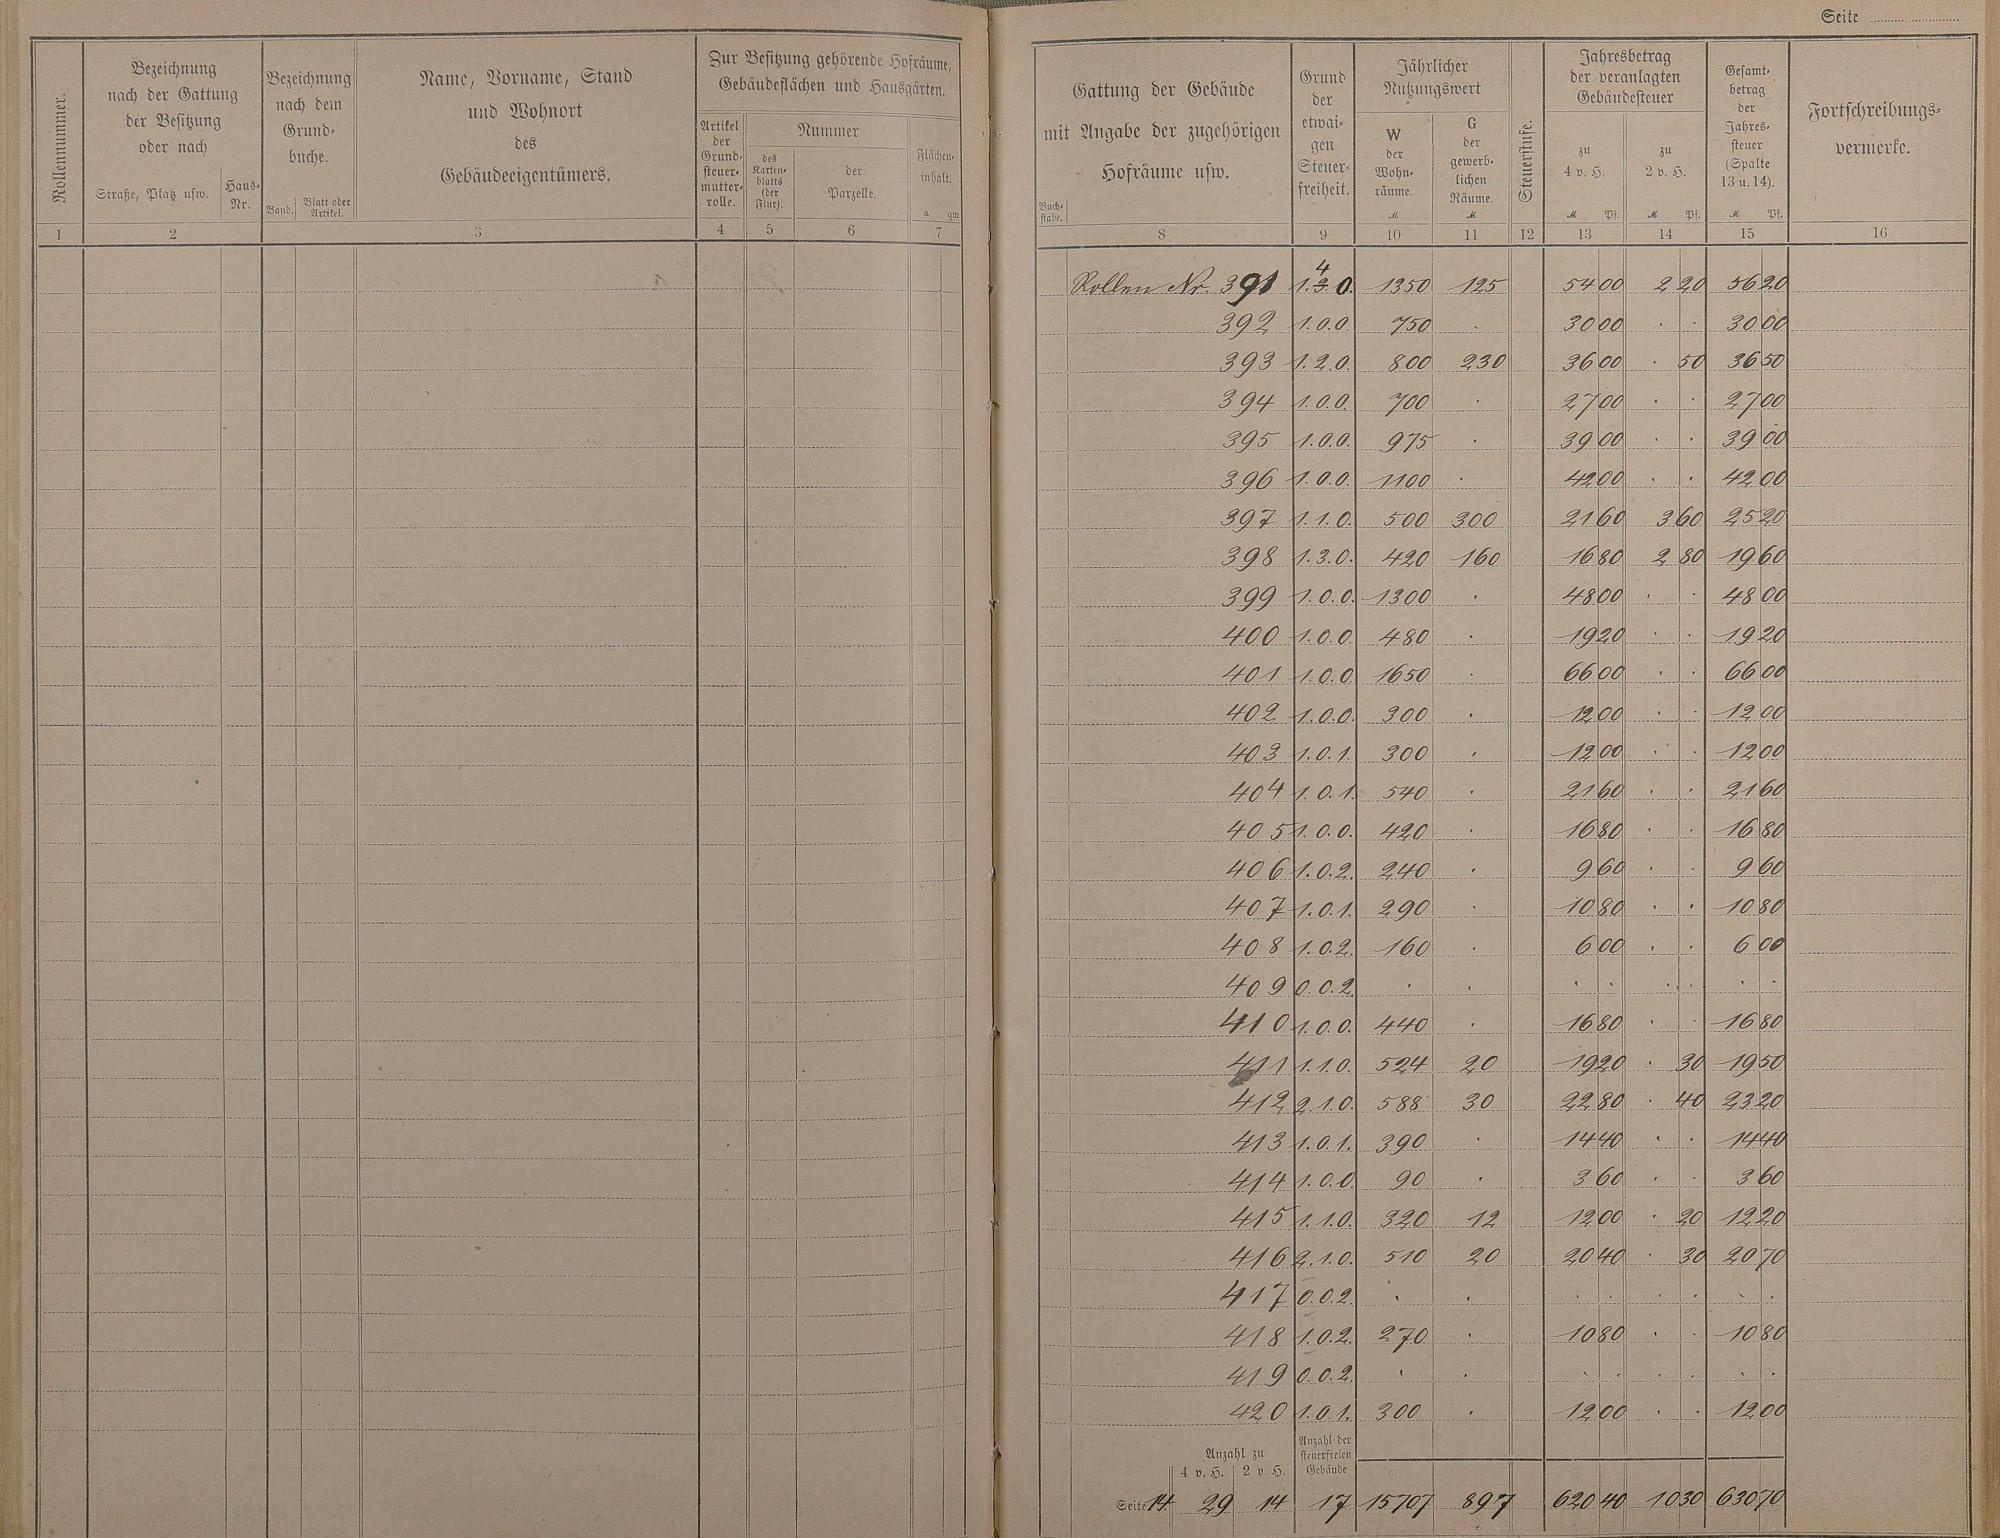 Seite
Rollennummer.
Bezeichnung
nach der Gattung
der Besitzung
oder nach
Straße, Platz usw.
Haus-
Nr.
Bezeichnung
nach dem
Grund-
buche.
Band.
Blatt oder
Artikel.
Name, Vorname, Stand
und Wohnort
des
Gebäudeeigentümers.
Zur Besitzung gehörende Hofräume,
Gebäudeflächen und Hausgärten.
Artikel
der
Grund-
steuer-
mutter-
rolle.
Nummer
des
Karten-
blatts
(der
Flur).
der
Parzelle.
Flächen-
inhalt.
a qm
1 2 3 4 5 6 7
Gattung der Gebäude
mit Angabe der zugehörigen
Hofräume usw.
Buch-
stabe.
Grund
der
etwai-
gen
Steuer-
freiheit.
Jährlicher
Nutzungswert
W
der
Wohn-
räume.
M
G
der
gewerb-
lichen
Räume.
M
Steuerstufe.
Jahresbetrag
der veranlagten
Gebäudesteuer
zu
4 v. H.
M Pf.
zu
2 v. H.
M Pf.
Gesamt-
betrag
der
Jahres-
steuer
(Spalte
13 u. 14).
M Pf.
Fortschreibungs-
vermerke.
8 9 10 11 12 13 14 15 16
4
Rollen Nr. 391 1.3.0. 1350 125 54 00 2 20 56 20
392 1.0.0. 750 . 30 00 . . 30 00
393 1.2.0. 800 230 36 00 . 50 36 50
394 1.0.0. 700 . 27 00 . . 27 00
395 1.0.0. 975 . 39 00 . . 39 00
396 1.0.0. 1100 . 42 00 . . 42 00
397 1.1.0. 500 300 21 60 3 60 25 20
398 1.3.0. 420 160 16 80 2 80 19 60
399 1.0.0. 1300 . 48 00 . . 48 00
400 1.0.0. 480 . 19 20 . . 19 20
401 1.0.0. 1650 . 66 00 . . 66 00
402 1.0.0. 300 . 12 00 . . 12 00
403 1.0.1. 300 . 12 00 . . 12 00
404 1.0.1. 540 . 21 60 . . 21 60
405 1.0.0. 420 . 16 80 . . 16 80
406 1.0.2. 240 . 9 60 . . 9 60
407 1.0.1. 290 . 10 80 . . 10 80
408 1.0.2. 160 . 6 00 . . 6 00
409 0.0.2. . . . . . . . .
410 1.0.0. 440 . 16 80 . . 16 80
411 1.1.0. 524 20 19 20 . 30 19 50
412 2.1.0. 588 30 22 80 . 40 23 20
413 1.0.1. 390 . 14 40 . . 14 40
414 1.0.0. 90 . 3 60 . . 3 60
415 1.1.0. 320 12 12 00 . 20 12 20
416 2.1.0. 510 20 20 40 . 30 20 70
417 0.0.2. . . . . . . . .
418 1.0.2. 270 . 10 80 . . 10 80
419 0.0.2. . . . . . . . .
420 1.0.1. 300 . 12 00 . . 12 00
Anzahl zu
4 v. H. 2 v. H.
Anzahl der
steuerfreien
Gebäude
Seite 14 29 14 17 15707 897 620 40 10 30 630 70